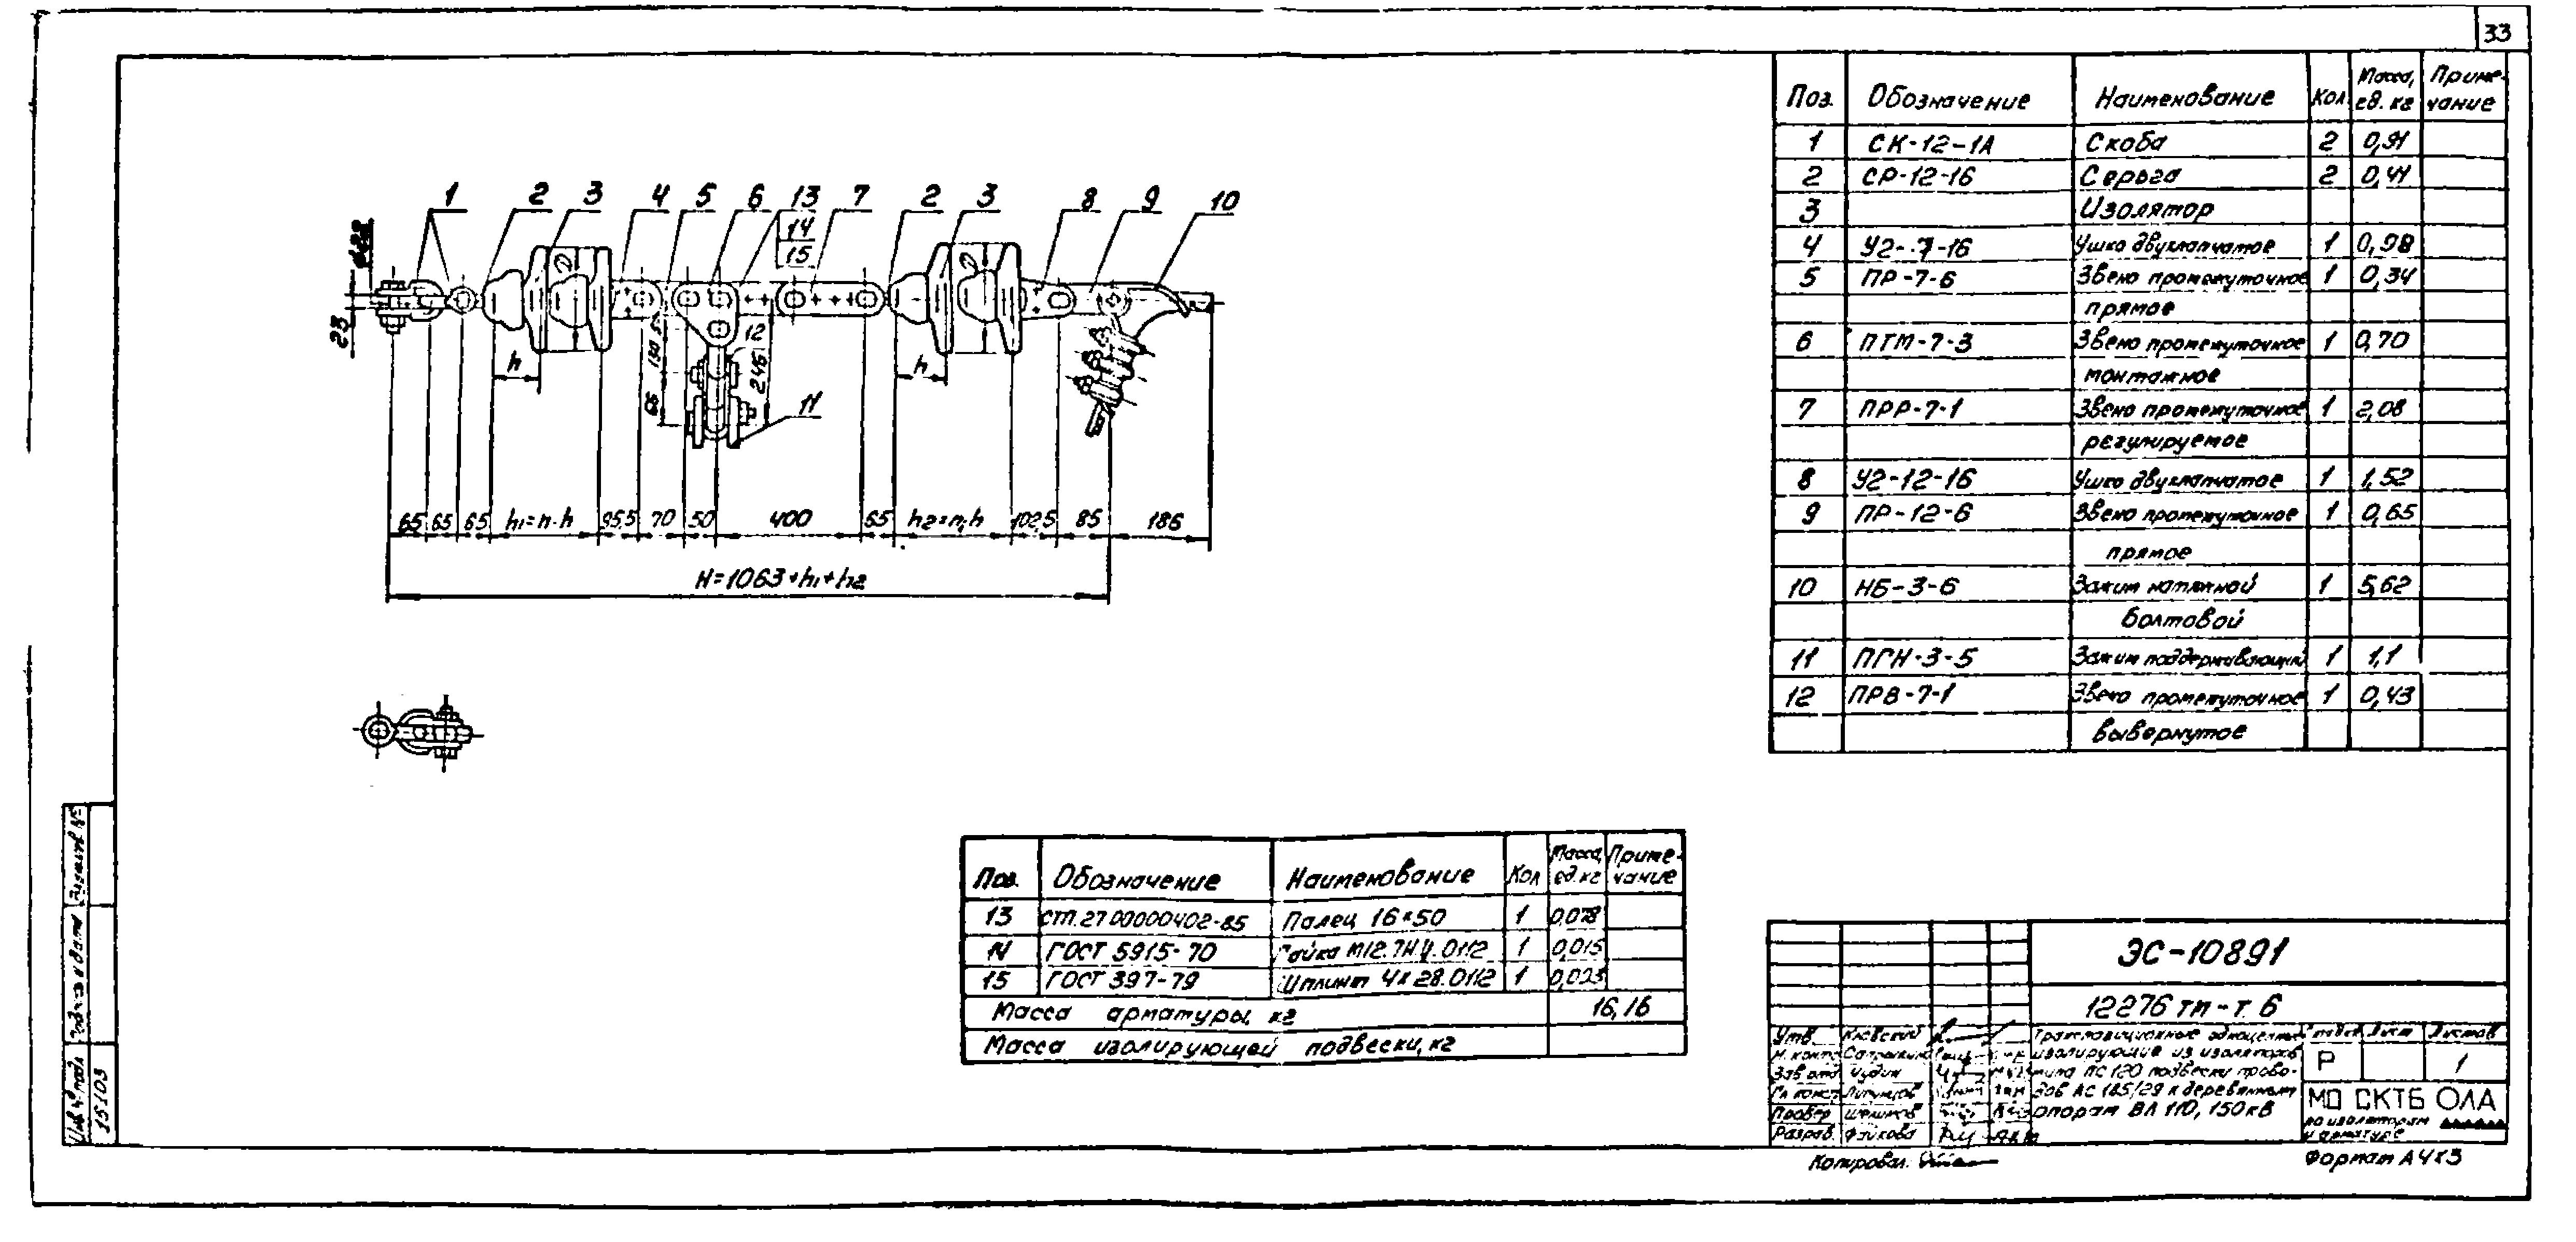 33
Поз. Обозначение Наименование Кол Масса, ед. кг Приме-чание
1 СК-12-1А Скоба 2 0,91
2 СР-12-16 Серьга 2 0,41
3 Изолятор
4 У2-7-16 Ушко двухлапчатое 1 0,98
5 ПР-7-6 Звено промежуточное 1 0,34
прямое
6 ПТМ-7-3 Звено промежуточное 1 0,70
монтажное
7 ПРР-7-1 Звено промежуточное 1 2,08
регулируемое
8 У2-12-16 Ушко двухлапчатое 1 1,52
9 ПР-12-6 Звено промежуточное 1 0,65
прямое
10 НБ-3-6 Зажим натяжной 1 5,62
болтовой
11 ПГН-3-5 Зажим поддерживающий 1 1,1
12 ПРВ-7-1 Звено промежуточное 1 0,43
вывернутое
1 2 3 4 5 6 13 7 2 3 8 9 10
14
15
23
D
D
h
h
12
130,5
66
246
11
65 65 65 h1=n·h 95,5 70 50 400 65 h2=n1·h 102,5 85 186
H=1063+h1+h2
Поз. Обозначение Наименование Кол Масса, ед. кг Приме-чание
13 СТП.2700000402-85 Палец 16×50 1 0,078
14 ГОСТ 5915-70 Гайка М12.7Н.4.0112 1 0,015
15 ГОСТ 397-79 Шплинт 4×28.0112 1 0,023
Масса арматуры, кг 16,16
Масса изолирующей подвески, кг
ЭС-10891
12276 тм-т. 6
Утв.
Н. контр.
Зав отд Чудин
Гл. конст.
Провер
Разраб. Файкова
Транспозиционные одноцепные
изолирующие из изоляторов
типа ПС 120 подвески прово-
дов АС 185/29 к деревянным
опорам ВЛ 110, 150 кВ
Лист Листов
Р 1
МО СКТБ ОЛА
по изоляторам
и арматуре
Копировал:
Формат А4×3
Взам инв №
Подпись и дата
Инв № подл.
15103